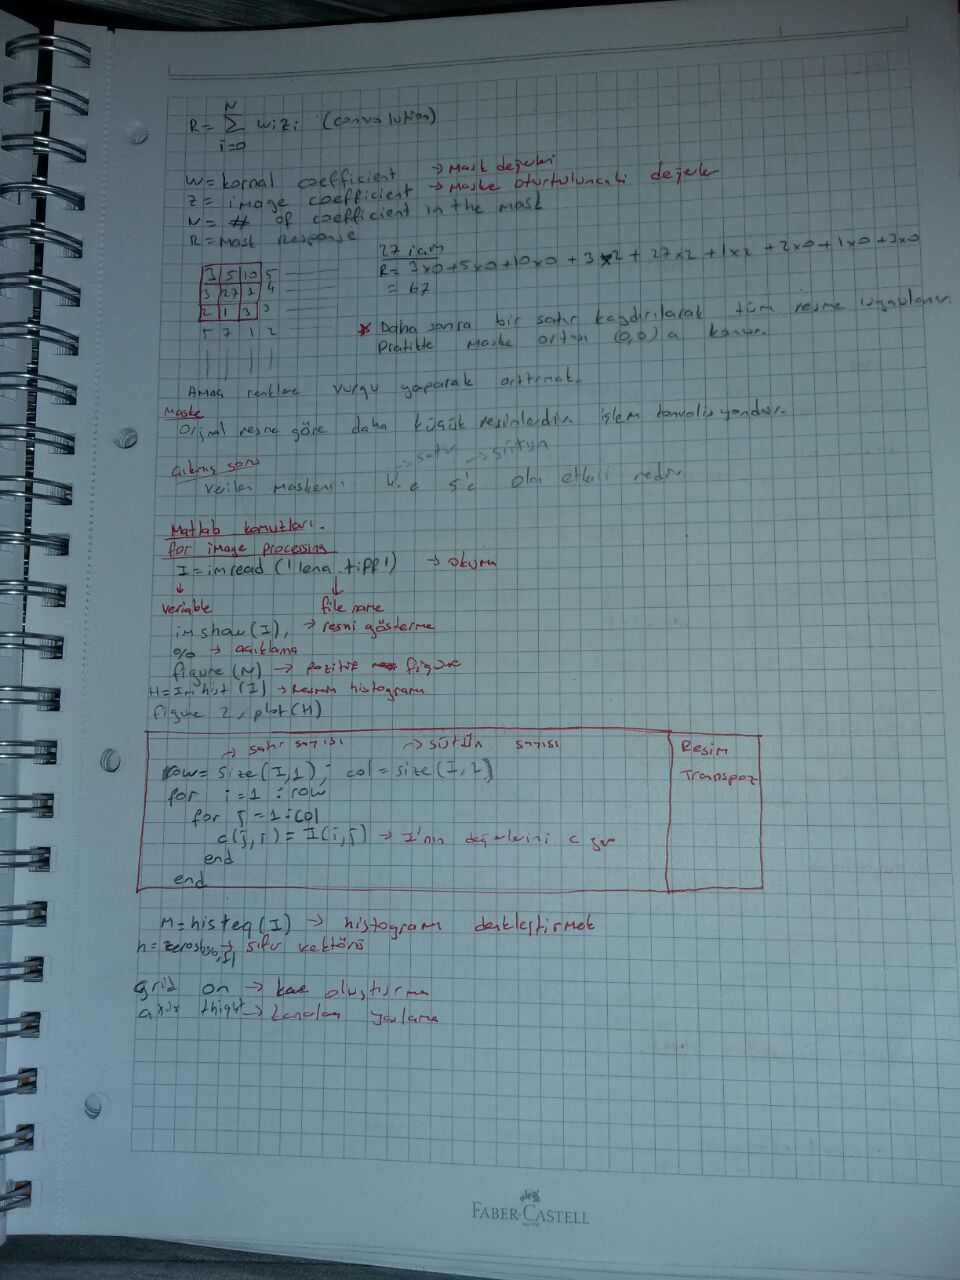 N
R = Σ wizi (convolution)
i=0
w = kornal coefficient → Mask değerleri
z = image coefficient → Maske oturtulunca ki değerler
N = # of coefficient in the mask
R = Mask Response
27 icin
R = 3x0+5x0+10x0 + 3x2 + 27x2 + 1x2 + 2x0 + 1x0 + 3x0
= 67
3 5 10 5
3 27 1 4
2 1 3 3
5 7 1 2
* Daha sonra bir satır kaydırılarak tüm resme uygulanır.
Pratikte Maske ortası (0,0) a konur.
Amaç renklere vurgu yaparak arttırmak.
Maske
Orjinal resme göre daha küçük resimlerdir. işlem
→ satır → sütun
Çıkmış soru
Verilen maskenin 4.e 5'e olan etkisi nedir
Matlab komutları.
for image processing
I = imread ('lena.tiff') → okuma
veriable file name
imshow(I), → resmi gösterme
% → açıklama
figure (N) → pozitif figure
H = Imhist (I) → Resmin histogramı
figure 2, plot(H)
→ satır sayısı → sütün sayısı
row = size(I,1); col = size(I,2)
for i=1 : row
for j=1:col
c(j,i) = I(i,j) → I'nın değerlerini c
end
end
Resim
Transpoz
M = histeq(I) → histogram denkleştirmek
h = zeros(256,1) → sıfır vektörü
grid on → kare oluşturma
axix thight →
FABER-CASTELL